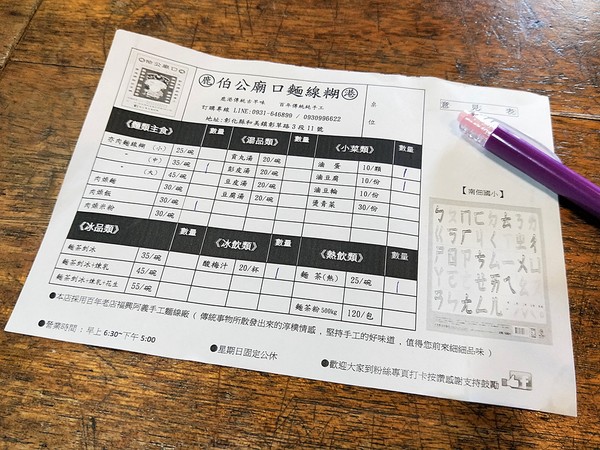 伯公廟口
鹿 伯公廟口麵線糊 港
鹿港傳統古早味 百年傳統純手工
訂購專線 LINE:0931-646890 / 0930996622
地址:彰化縣和美鎮彰草路3段11號
桌位
意見表
《麵類主食》 數量
夯肉麵線糊 (小) 25/碗
~ (中) 35/碗
~ (大) 45/碗
肉燥麵 30/碗
肉燥飯 30/碗
肉燥米粉 30/碗
《湯品類》 數量
貢丸湯 20/碗
彭皮湯 20/碗
豆皮湯 20/碗
豆腐湯 20/碗
《小菜類》 數量
滷蛋 10/顆
油豆腐 10/份
油豆輪 10/份
燙青菜 30/份
《冰品類》 數量
麵茶剉冰 35/碗
麵茶剉冰+煉乳 45/碗
麵茶剉冰+煉乳+花生 55/碗
《冰飲類》 數量
酸梅汁 20/杯
《熱飲類》 數量
麵茶(熱) 25/碗
麵茶粉500kg 120/包
【南佃國小】
●本店採用百年老店福興阿義手工麵線廠 ( 傳統事物所散發出來的淳樸情感 , 堅持手工的好味道 , 值得您前來細細品味 )
●營業時間 : 早上 6:30~下午 5:00
●星期日固定公休
●歡迎大家到粉絲專頁打卡按讚感謝支持鼓勵